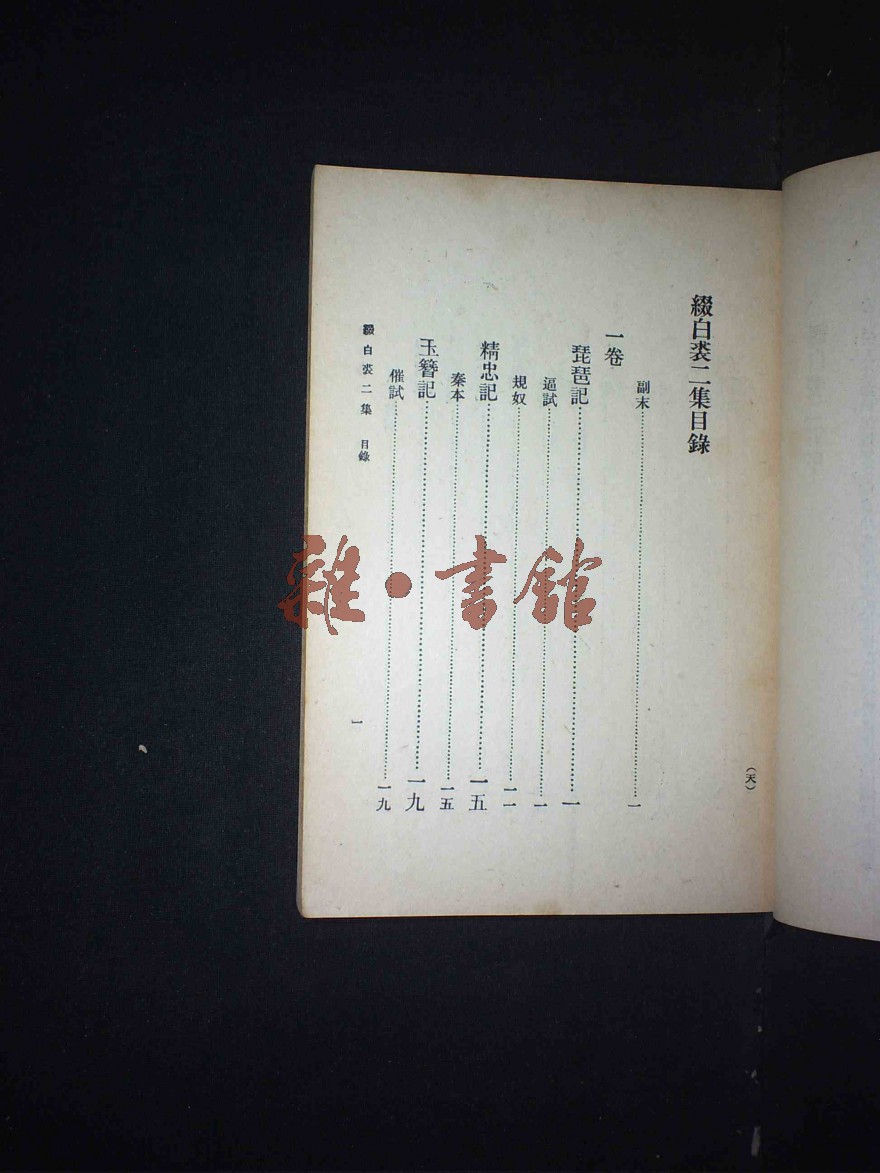 綴白裘二集目錄
（天）
副末……一
一卷
琵琶記……一
逼試……一
規奴……一一
精忠記……一五
秦本……一五
玉簪記……一九
催試……一九
綴白裘二集 目錄
一
雜·書館